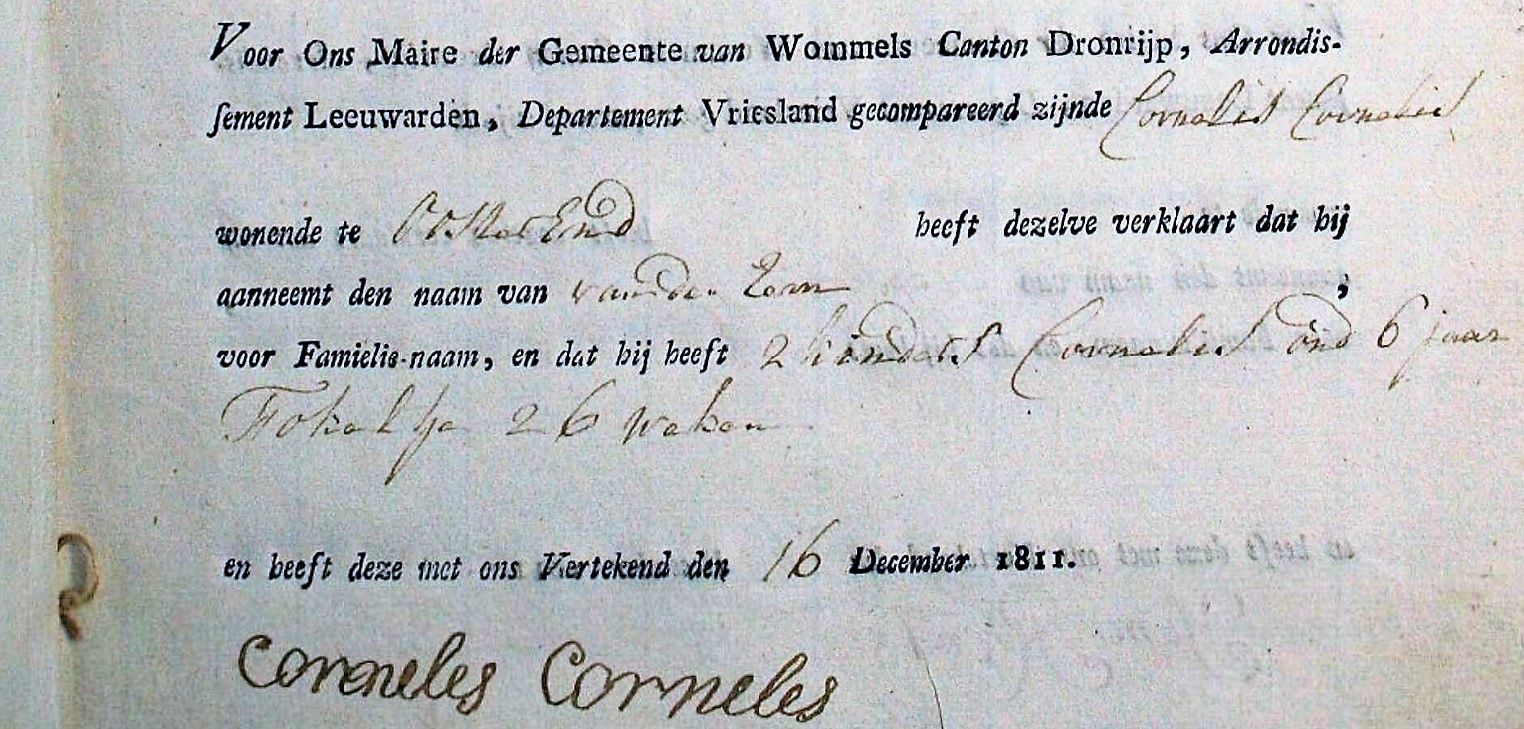 Voor Ons Maire der Gemeente van Wommels Canton Dronrijp, Arrondis-
sement Leeuwarden, Departement Vriesland gecompareerd zijnde Cornelis Cornelis
wonende te OosterEnd heeft dezelve verklaart dat hij
aanneemt den naam van vander Eem ,
voor Famielie-naam, en dat hij heeft 2 kinders Cornelis oud 6 jaar
Fokeltje 26 weken
en heeft deze met ons Vertekend den 16 December 1811.
Corneles Corneles